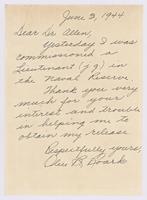 June 2, 1944
Dear Dr Allen,
Yesterday I was
commissioned a
Lieutenant (jg) in
the Naval Reserve
Thank you very
much for your
interest and trouble
in helping me to
obtain my release
Respectfully yours,